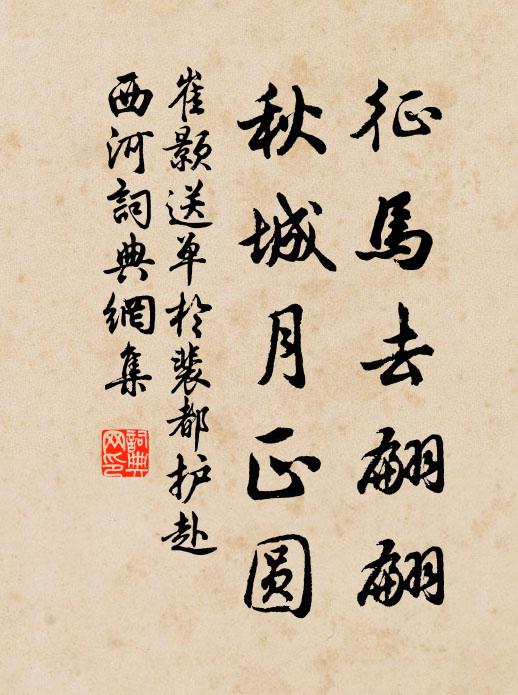 征馬去翩翩
秋城月正圆
崔颢送单於裴都护赴
西河詞典網集
詞典
网印